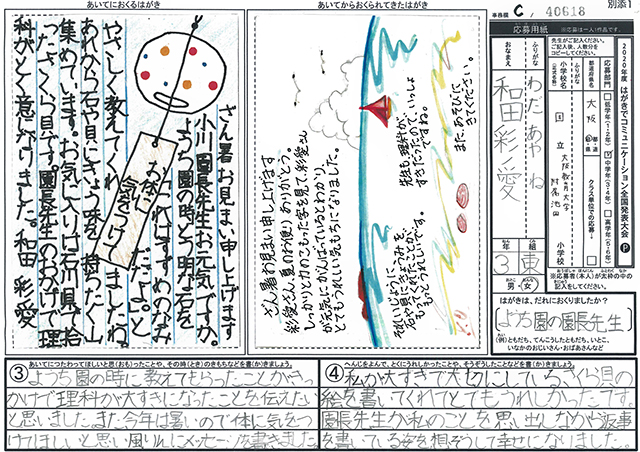 別添1
事務欄 C / 40618
応募用紙
※応募は一人1作品です。
先生がご記入ください。
ご記入後、人数分を
コピーしてください。
2020年度 はがきでコミュニケーション全国発表大会
応募部門
低学年(1・2年)
中学年(3・4年)
高学年(5・6年)
都道府県名
大阪
都・道
府・県
クラス単位での応募
小学校名
(正式名称)
国立 大阪教育大学
附属池田
小学校
ふりがな
わだ あやね
おなまえ
和田 彩愛
3
年
東
組
男・女
※応募者(本人)が太枠の中の
記入をしてください。
はがきは、だれにおくりましたか?
(ようち園の園長先生)
(例)ともだち、てんこうしたともだち、いとこ、
いなかのおじいさん・おばあさんなど
あいてにおくるはがき
さん暑お見まい申し上げます
小川園長先生お元気ですか。
ようち園の時とう明な石を
「これはすいめのなみ
だだよ。」と
やさしく教えてくれましたね。
あれから石や貝にきょう味を持ちたくさん
集めています。お気に入りは石川県で拾
ったさくら貝です。園長先生のおかげで理
科がとく意になりました。和田彩愛
お体に
気をつけて
あいてからおくられてきたはがき
さん暑お見まい申し上げます
彩愛さん、夏のお便りありがとう。
しっかりと力のこもった字を見て、彩愛さん
が元気にがんばっているとわかり、
とてもうれしい気もちになりました。
それに、
石や貝にきょうみを
もってくれたことが、
もっとうれしいです。
先生も、理科が、
すきだったので、いっしょ
ですね。
また、あそびに
きてください。
③ あいてにつたわってほしいと思(おも)ったことや、その時(とき)のきもちなどを書(か)きましょう。
よう ち園の時に教えてもらったことがきっ
かけで理科が大すきになったことを伝えたい
と思いました。また今年は暑いので体に気をつ
けてほしいと思い風りんにメッセージを書きました。
④ へんじをよんで、とくにうれしかったことや、そうぞうしたことなどを書(か)きましょう。
私が大すきで大切にしているさくら貝の
絵を書いてくれてとてもうれしかったです。
園長先生が私のことを思い出しながら返事
を書いている姿を想ぞうして幸せになりました。